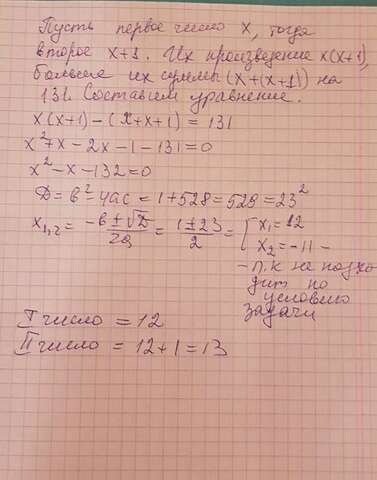 Пусть первое число x, тогда
второе x+1. Их произведение x(x+1),
больше их суммы (x+(x+1)) на
131. Составим уравнение.
x(x+1)-(x+x+1) = 131
x²+x-2x-1-131=0
x²-x-132=0
D=b²-4ac=1+528=529=23²
x₁,₂ = (-b±√D)/2a = (1±23)/2 = { x₁=12
x₂=-11 -
- п.к не подхо
дит по
условию
задачи
I число = 12
II число = 12+1=13